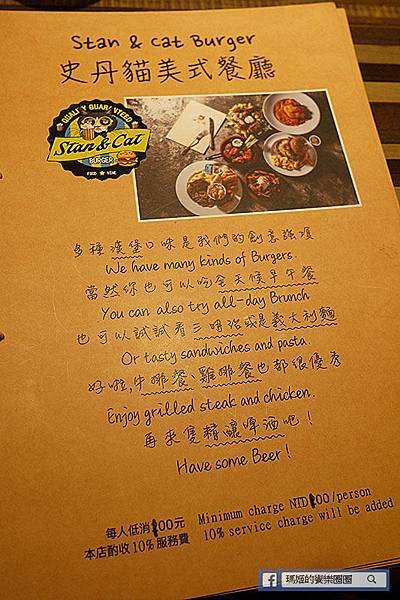 Stan & Cat Burger
史丹貓美式餐廳
QUALITY GUARANTEED
Stan & Cat
BURGER
FOOD ★ VIBE
多種漢堡口味是我們的創意強項
We have many kinds of Burgers.
當然你也可以吃全天候早午餐
You can also try all-day Brunch
也可以試試看三明治或是義大利麵
Or tasty sandwiches and pasta.
好啦,牛排餐、雞排餐也都很優秀
Enjoy grilled steak and chicken.
再來隻精釀啤酒吧!
Have some Beer!
每人低消100元 Minimum charge NTD100/person
本店酌收10%服務費 10% service charge will be added
瑪姬的饗樂圈圈